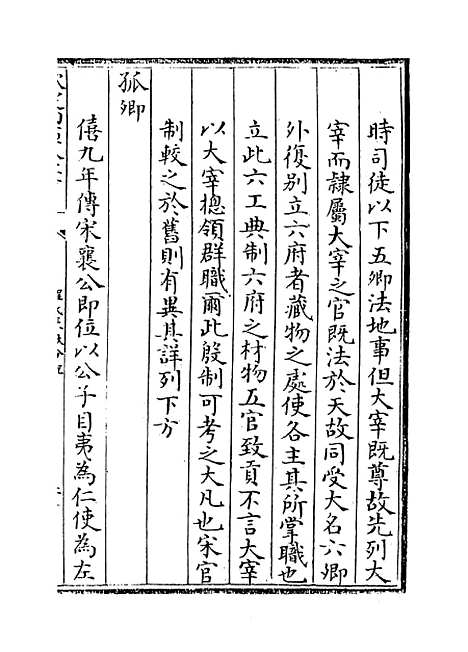 時司徒以下五卿法地事但大宰既尊故先列大
宰而隷屬大宰之官既法於天故同受大名六卿
外復別立六府者藏物之處使各主其所掌職也
立此六工典制六府之材物五官致貢不言大宰
以大宰摠領群職爾此殷制可考之大凡也宋官
制較之於舊則有異其詳列下方
孤卿
僖九年傳宋襄公即位以公子目夷為仁使為左